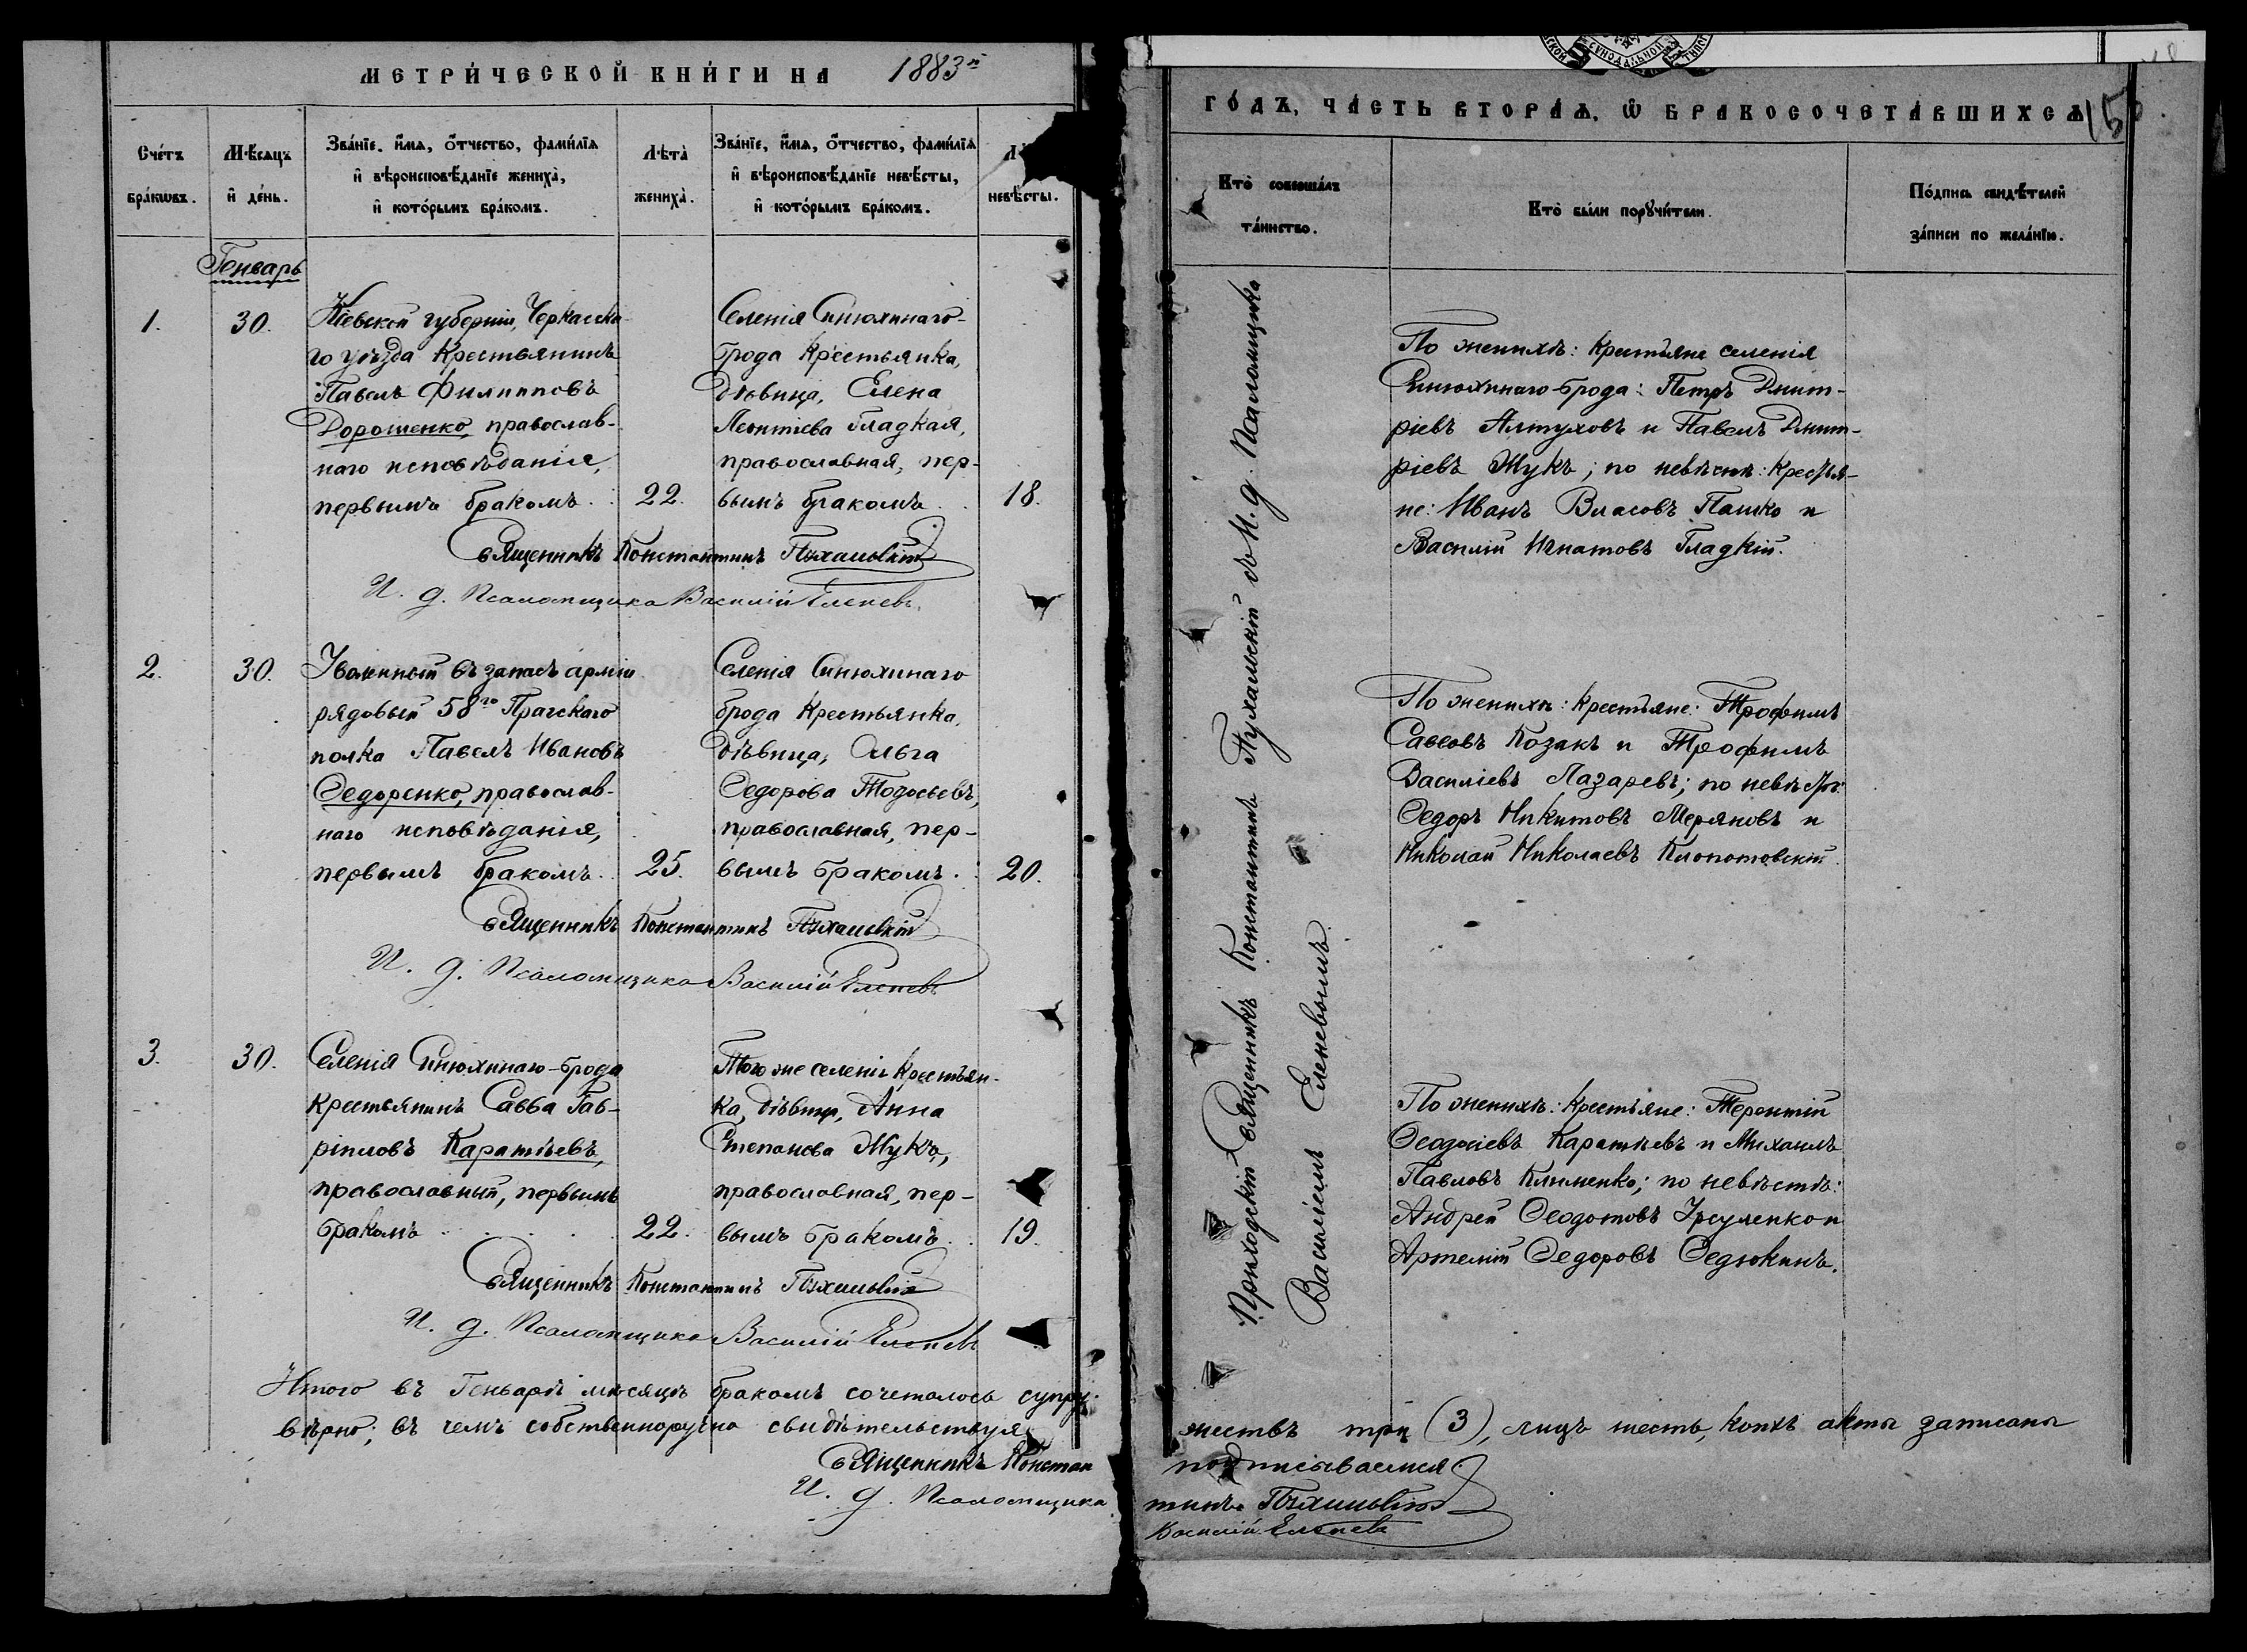 МЕТРИЧЕСКОЙ КНИГИ НА 1883й
Счетъ браковъ.
Мѣсяцъ и день.
Званіе, имя, отчество, фамилія
и вѣроисповѣданіе жениха,
и которымъ бракомъ.
Лѣта
жениха.
Званіе, имя, отчество, фамилія
и вѣроисповѣданіе невѣсты,
и которымъ бракомъ.
невѣсты.
Генварь
1.
30.
Кіевской губерніи, Черкасска-
го уѣзда Крестьянинъ
Павелъ Филипповъ
Дорошенко, православ-
наго исповѣданія,
первымъ бракомъ.
22.
Селенія Синюхинаго-
брода Крестьянка,
дѣвица, Елена
Леонтіева Гладкая,
православная, пер-
вымъ бракомъ.
18.
Священникъ Константинъ Пухальскій
И. д. Псаломщика Василій Еленевъ
2.
30.
Уволенный въ запасъ арміи
рядовый 58го Прагскаго
полка Павелъ Ивановъ
Ѳедоренко, православ-
наго исповѣданія,
первымъ бракомъ.
25.
Селенія Синюхинаго
брода Крестьянка,
дѣвица, Ольга
Ѳедорова
православная, пер-
вымъ бракомъ.
20.
Священникъ Константинъ Пухальскій
И. д. Псаломщика Василій Еленевъ
3.
30.
Селенія Синюхинаго-брода
Крестьянинъ Савва Гав-
ріиловъ Каратѣевъ,
православный, первымъ
бракомъ
22.
Того же селенія Крестьян-
ка, дѣвица, Анна
Степанова Жукъ,
православная, пер-
вымъ бракомъ.
19.
Священникъ Константинъ Пухальскій
И. д. Псаломщика Василій Еленевъ
Итого въ Генварѣ мѣсяцѣ бракомъ сочеталось супру-
вѣрно; въ чемъ собственноручно свидѣтельствуя
Священникъ Констан
И. д. Псаломщика
ГОДЪ, ЧАСТЬ ВТОРАЯ, Ѿ БРАКОСОЧЕТАВШИХСЯ
15
Кто совершалъ
таинство.
Кто были поручители.
Подпись свидѣтелей
записи по желанію.
Приходскій Священникъ Константинъ Пухальскій съ И. д. Псаломщика
Василіемъ Еленевымъ.
По женихѣ: Крестьяне селенія
Синюхинаго-брода: Петръ Дмит-
ріевъ Алтуховъ и Павелъ Дмит-
ріевъ Жукъ; по невѣстѣ: Крестья-
не: Иванъ Власовъ Пашко и
Василій Игнатовъ Гладкій.
По женихѣ: Крестьяне: Трофимъ
Саввовъ Козакъ и Трофимъ
Василіевъ Лазаревъ; по невѣстѣ:
Ѳедоръ Никитовъ Меряновъ и
Николай Николаевъ Клопотовскій.
По женихѣ: Крестьяне: Терентій
Ѳеодосіевъ Каратѣевъ и Михаилъ
Павловъ Клименко; по невѣстѣ:
Андрей Ѳеодотовъ Урсуленко и
Артемій Ѳедоровъ Ѳедюкинъ.
жествъ три (3), лицъ шесть, коихъ акты записаны
подписываемся:
тинъ Пухальскій
Василій Еленевъ